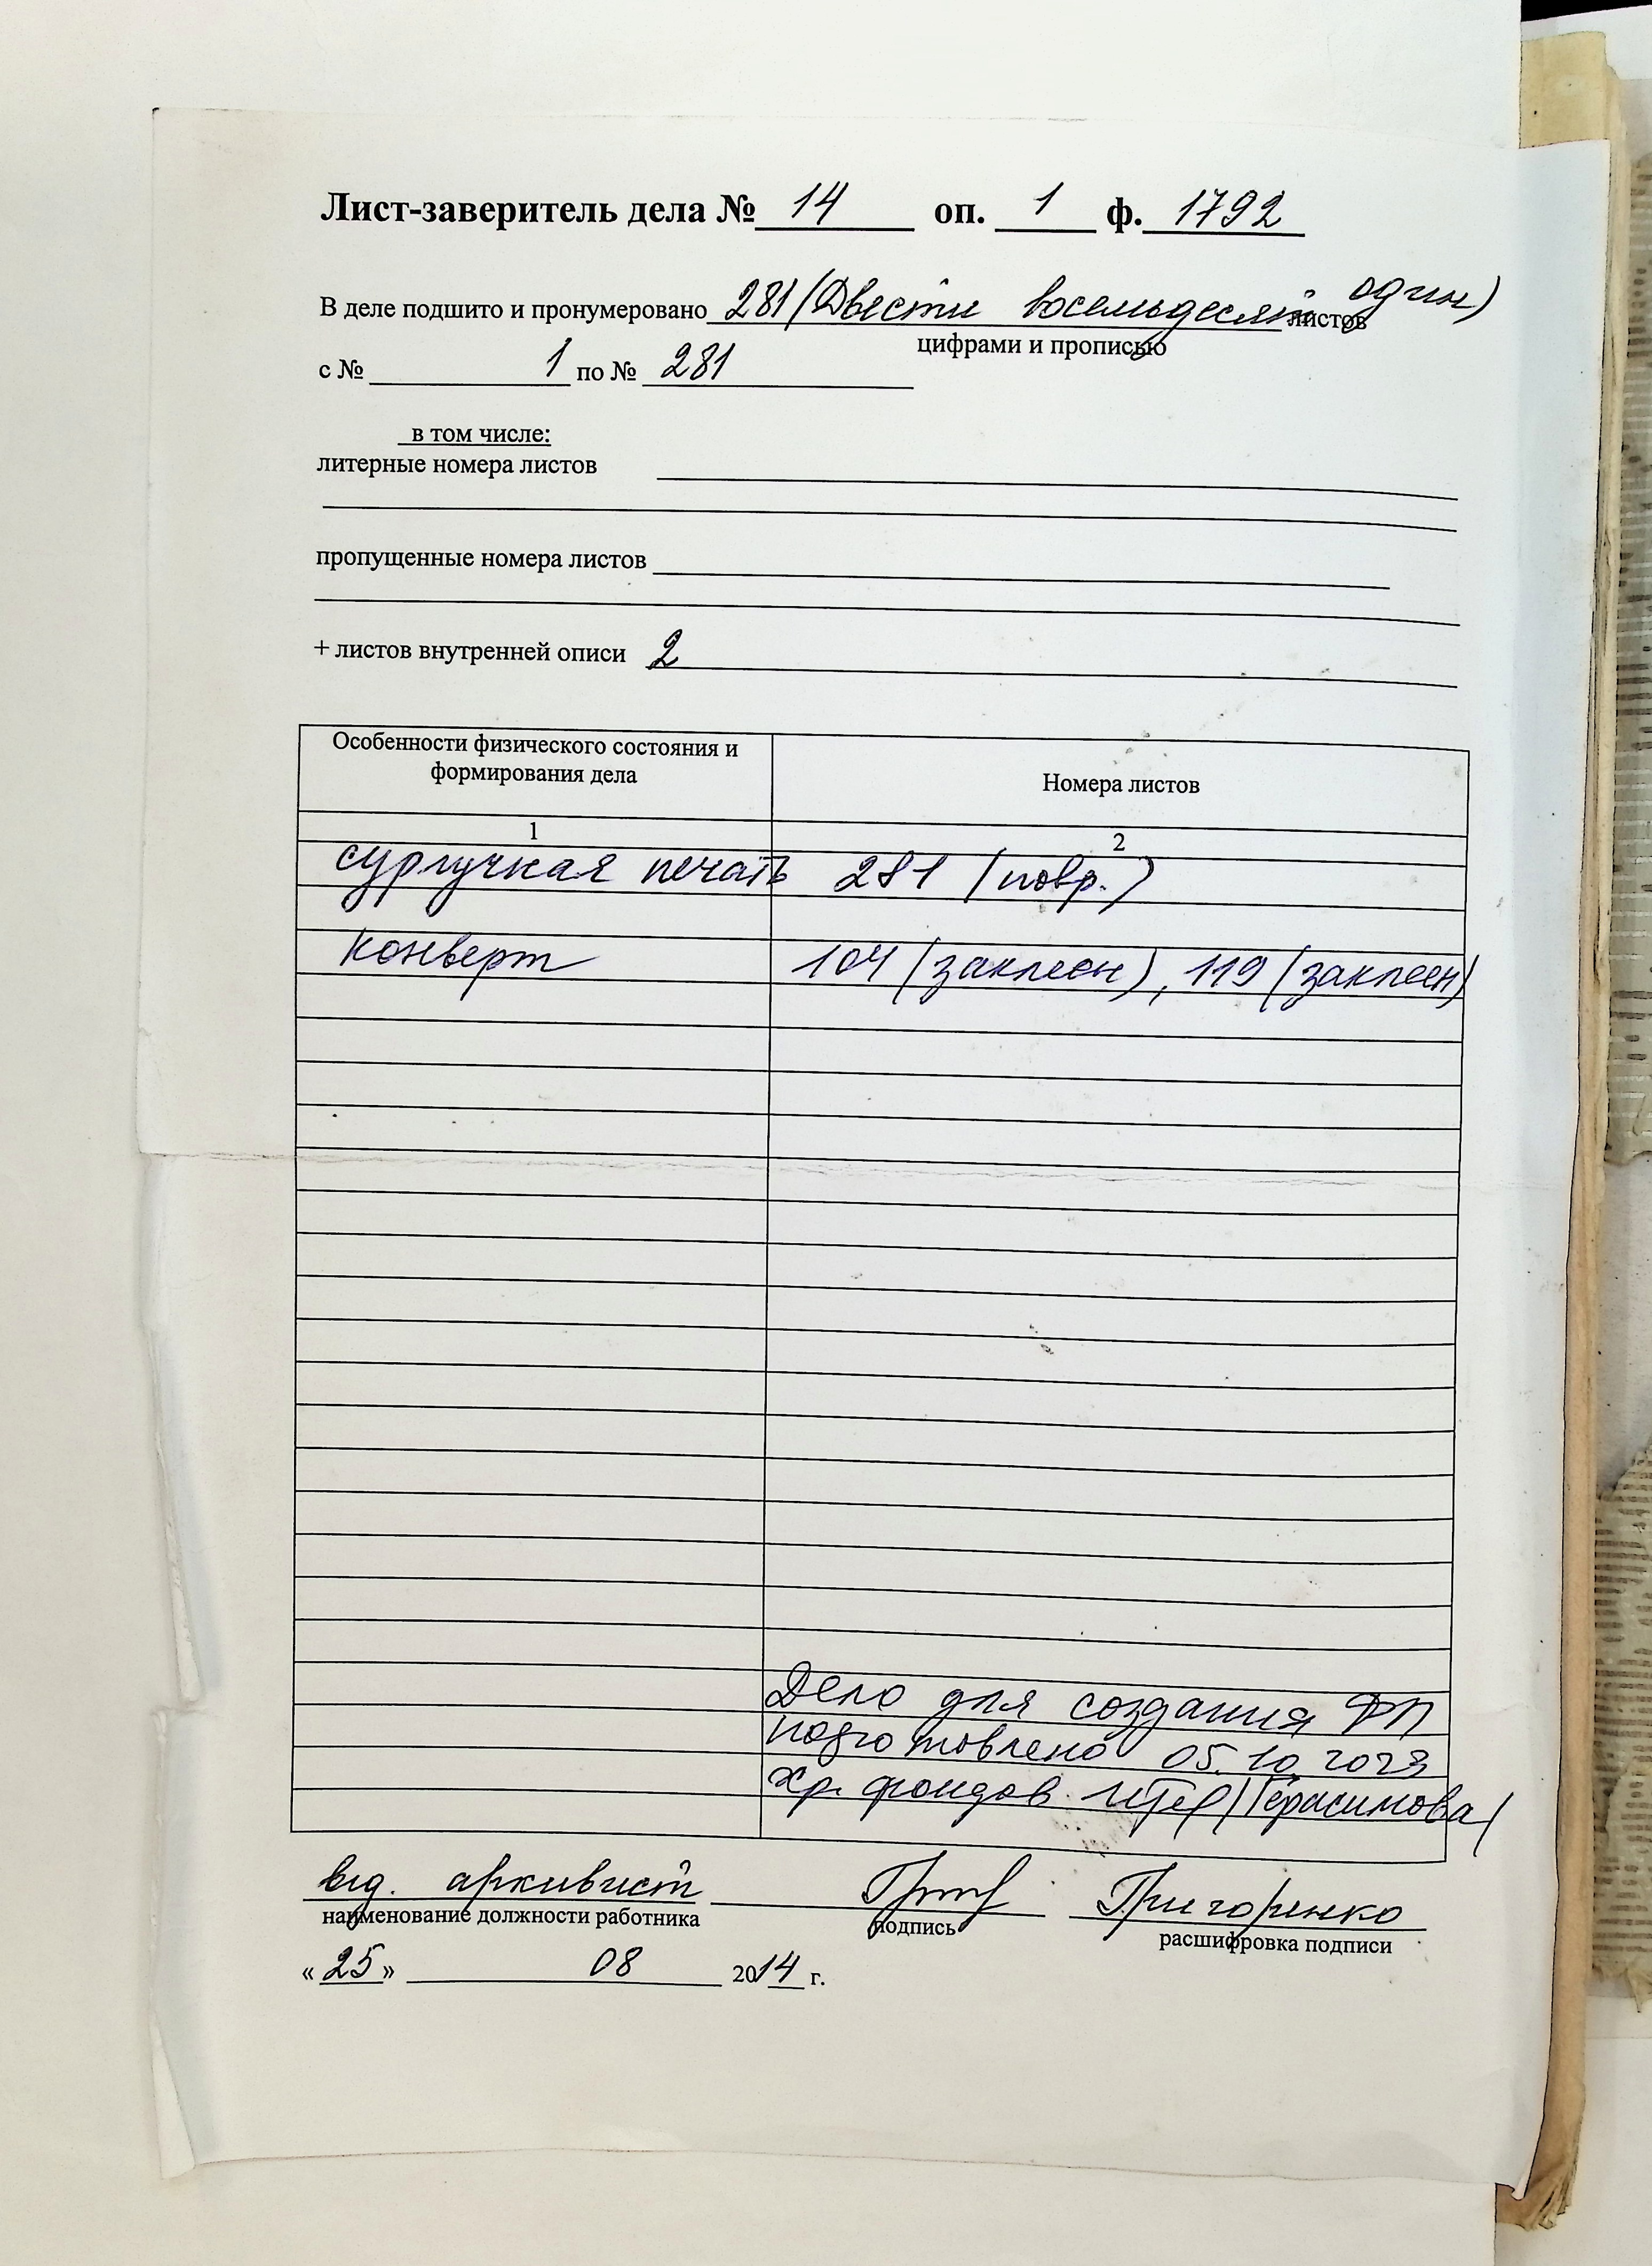 Лист-заверитель дела № 14 оп. 1 ф. 1792
В деле подшито и пронумеровано 281 (Двести восемьдесят один) листов
цифрами и прописью
с № 1 по № 281
в том числе:
литерные номера листов
пропущенные номера листов
+ листов внутренней описи 2
Особенности физического состояния и формирования дела
Номера листов
1 2
сургучная печать 281 (повр.)
конверт 104 (заклеен), 119 (заклеен)
Дело для создания ФП
подготовлено 05.10.2023
Хр. фондов /Герасимова/
вед. архивист Григоренко
наименование должности работника подпись расшифровка подписи
«25» 08 2014 г.